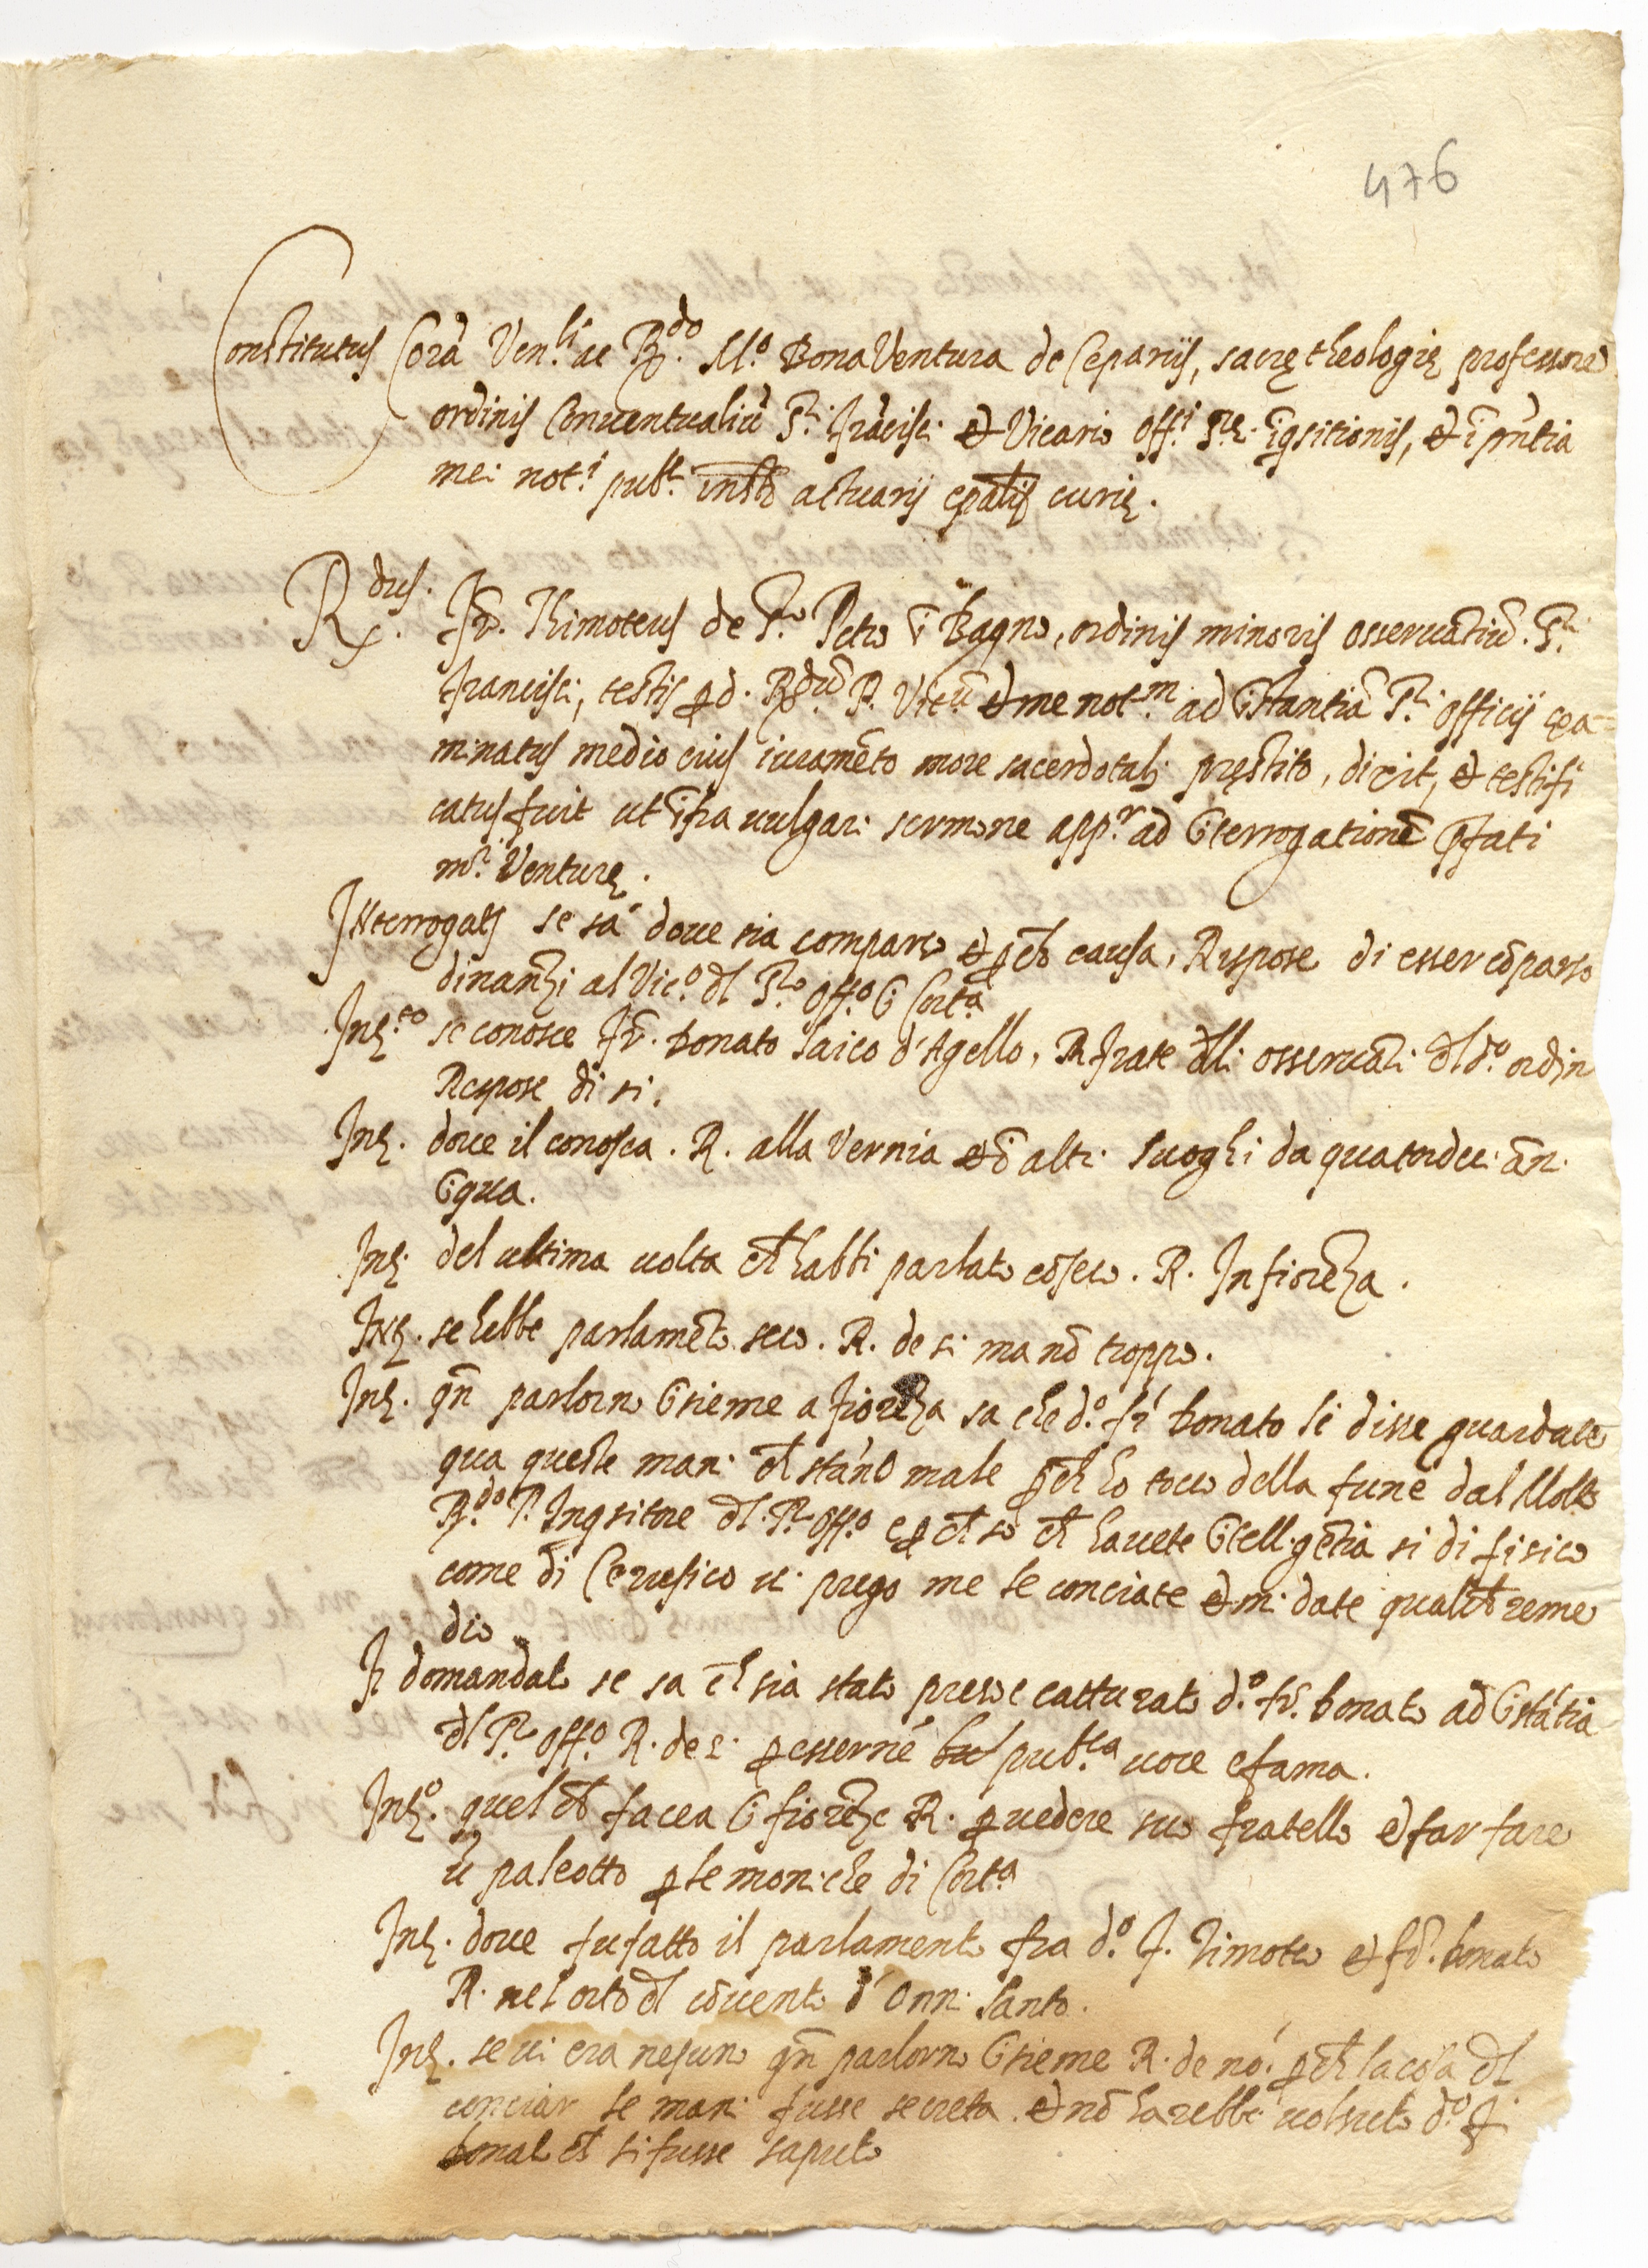 476
Constitutus Corã Ven.li ac R.do M.o BonaVentura de Cepariis, sacrę theologię professore
ordinis Conuentualiũ S.ti frãcisci et Vicario off.i S.tę. ĩqsitionis, et ĩ pñtia
mei not.i pub.ci actuarij epalis curię.
R.dus. fr̃. Thimoteus de S.to Petro ĩ Bagno, ordinis minoris osseruãtiũ. S.ti
francisci, testis p d. R.dũ P. Vic.ũ et me not.m ad ĩstantiã S.ti officij exa=
minatus medio eius iuramẽto more sacerdotali pręstito, dixit, et testifi
catus fuit ut ĩfra uulgari sermone app.r ad ĩterrogationẽ pfati
m.ri Venturę.
INterrogats se sa doue sia comparso et p ch causa, Rispose di esser cõparso
dinanzi al Vic.o dl S.to off.o ĩ Cort.a
Int.to se conosce fr̃. bonato laico d'Agello, R frate dlli osseruãti dl d.o ordin
Respose di si.
Int. doue il conosca. R. alla Vernia et ĩ altri luoghi da quatordici ãni
ĩqua.
Int. del ultima uolta ch habbi parlato cõseco. R. In fiorẽza.
INt. se hebbe parlamẽto seco. R. de si ma nõ troppo.
Int. qñ parlorno ĩsieme a fiorẽza sa che d.o fr̃ bonato li disse guardate
qua queste mani ch stãno male p ch ho tocco della fune dal Molto
R.do P. Inqsitore dl S.to off.o e p ch so ch hauete ĩtelligẽtia si di fisico
come di Cerusico ui prego me le conciate et mi date qualch reme
dio
It domandato se sa ch sia stato preso e catturato d.o fr̃. bonato ad ĩstãtia
dl S.to off.o R. de si p esserne pub.ca uoce e fama.
Int.o. quel ch facea ĩ fiorẽze R. p uedere suo fratello et far fare
ũ paleotto p le moniche di Cort.a
Int. doue fu fatto il parlamento fra d.o f. Timoteo et fr̃. bonato
R. nel orto dl cõuento d'Onni Santo.
Int. se ui era nesuno qñ parlorno ĩsieme R. de nó. p ch la cosa dl
conciar le mani fusse secreta. et nõ harebbe uolsuto d.o f.
bonato ch si fusse saputo